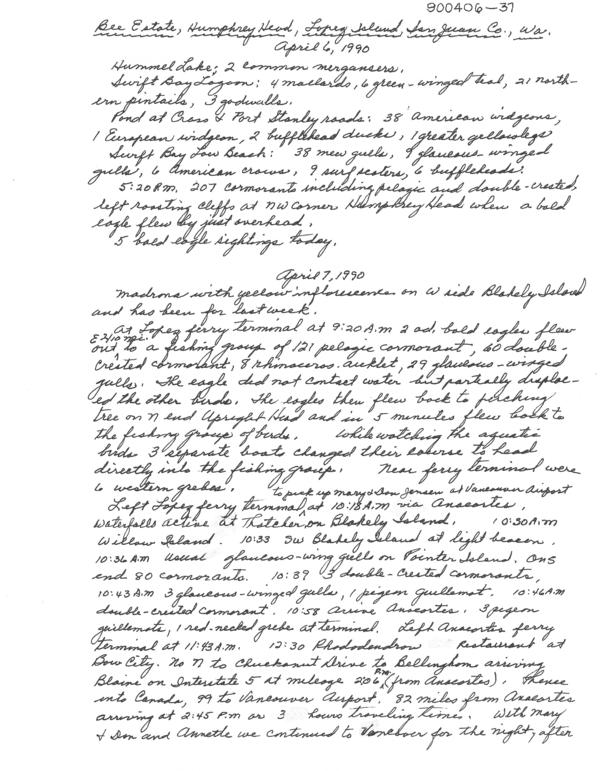 900406-37
Bee Estate, Humphrey Head, Lopez Island, San Juan Co., Wa.
April 6, 1990
Hummel Lake; 2 common mergansers.
Swift Bay Lagoon; 4 mallards, 6 green-winged teal, 21 north-
ern pintails, 3 godwalls.
Pond at Cross & Port Stanley roads: 38 American widgeons,
1 European widgeon, 2 bufflehead ducks, 1 greater yellowlegs
Swift Bay Low Beach: 38 mew gulls, 9 glaucous-winged
gulls, 6 American crows, 9 surf scoters, 6 buffleheads.
5:20 P.M. 207 cormorants including pelagic and double-crested,
left roosting cliffs at NW corner Humphrey Head when a bald
eagle flew by just overhead.
5 bald eagle sightings today.
April 7, 1990
Madrona with yellow inflorescence on W side Blakely Island
and has been for last week.
At Lopez ferry terminal at 9:20 A.M 2 ad. bald eagles flew
E 2/10 mi.
out to a fishing group of 121 pelagic cormorant, 60 double-
crested cormorant, 8 rhinoceros auklet, 29 glaucous-winged
gulls. The eagle did not contact water but partially displac-
ed the other birds. The eagles then flew back to perching
tree on N end Upright Head and in 5 minutes flew back to
the fishing group of birds. While watching the aquatic
birds 3 separate boats changed their course to head
directly into the fishing group. Near ferry terminal were
6 western grebes.
to pick up Mary & Don Jensen at Vancouver Airport
Left Lopez ferry terminal at 10:18 A.M via Anacortes.
Waterfalls active at Thatcher, on Blakely Island. 10:30 A.M
Willow Island. 10:33 SW Blakely Island at light beacon.
10:36 A.M usual glaucous-wing gulls on Pointer Island. On S
end 80 cormorants. 10:39 3 double-crested cormorants,
10:43 A.M 3 glaucous-winged gulls, 1 pigeon guillemot. 10:46 A.M
double-crested cormorant. 10:58 arrive Anacortes. 3 pigeon
guillemots, 1 red-necked grebe at terminal. Left Anacortes ferry
terminal at 11:43 A.M. 12:30 Rhododendron Restaurant at
Bow City. No N to Chuckanut Drive to Bellingham arriving
Blaine on Interstate 5 at mileage 206 (from Anacortes). Thence
into Canada, 99 to Vancouver Airport. 82 miles from Anacortes
arriving at 2:45 P.M or 3 hours traveling time. With Mary
& Don and Annette we continued to Vancover for the night, after